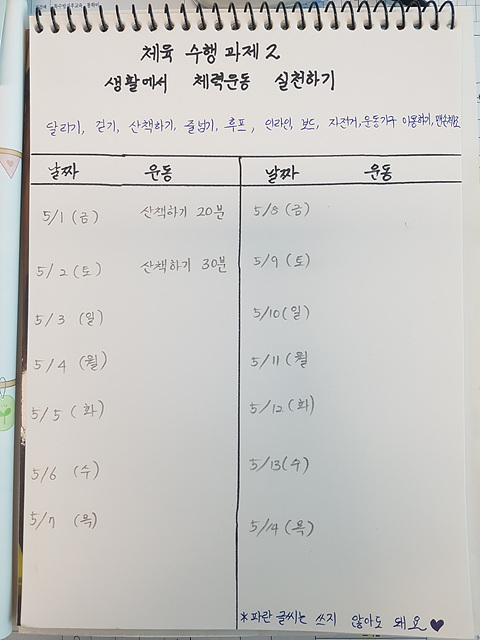 체육 수행 과제 2
생활에서 체력운동 실천하기
달리기, 걷기, 산책하기, 줄넘기, 후프, 인라인, 보드, 자전거, 운동기구 이용하기, 맨손체조
날짜 운동 날짜 운동
5/1 (금) 산책하기 20분 5/8 (금)
5/2 (토) 산책하기 30분 5/9 (토)
5/3 (일) 5/10 (일)
5/4 (월) 5/11 (월
5/5 (화) 5/12 (화)
5/6 (수) 5/13 (수)
5/7 (목) 5/14 (목)
*파란 글씨는 쓰지 않아도 돼요♥